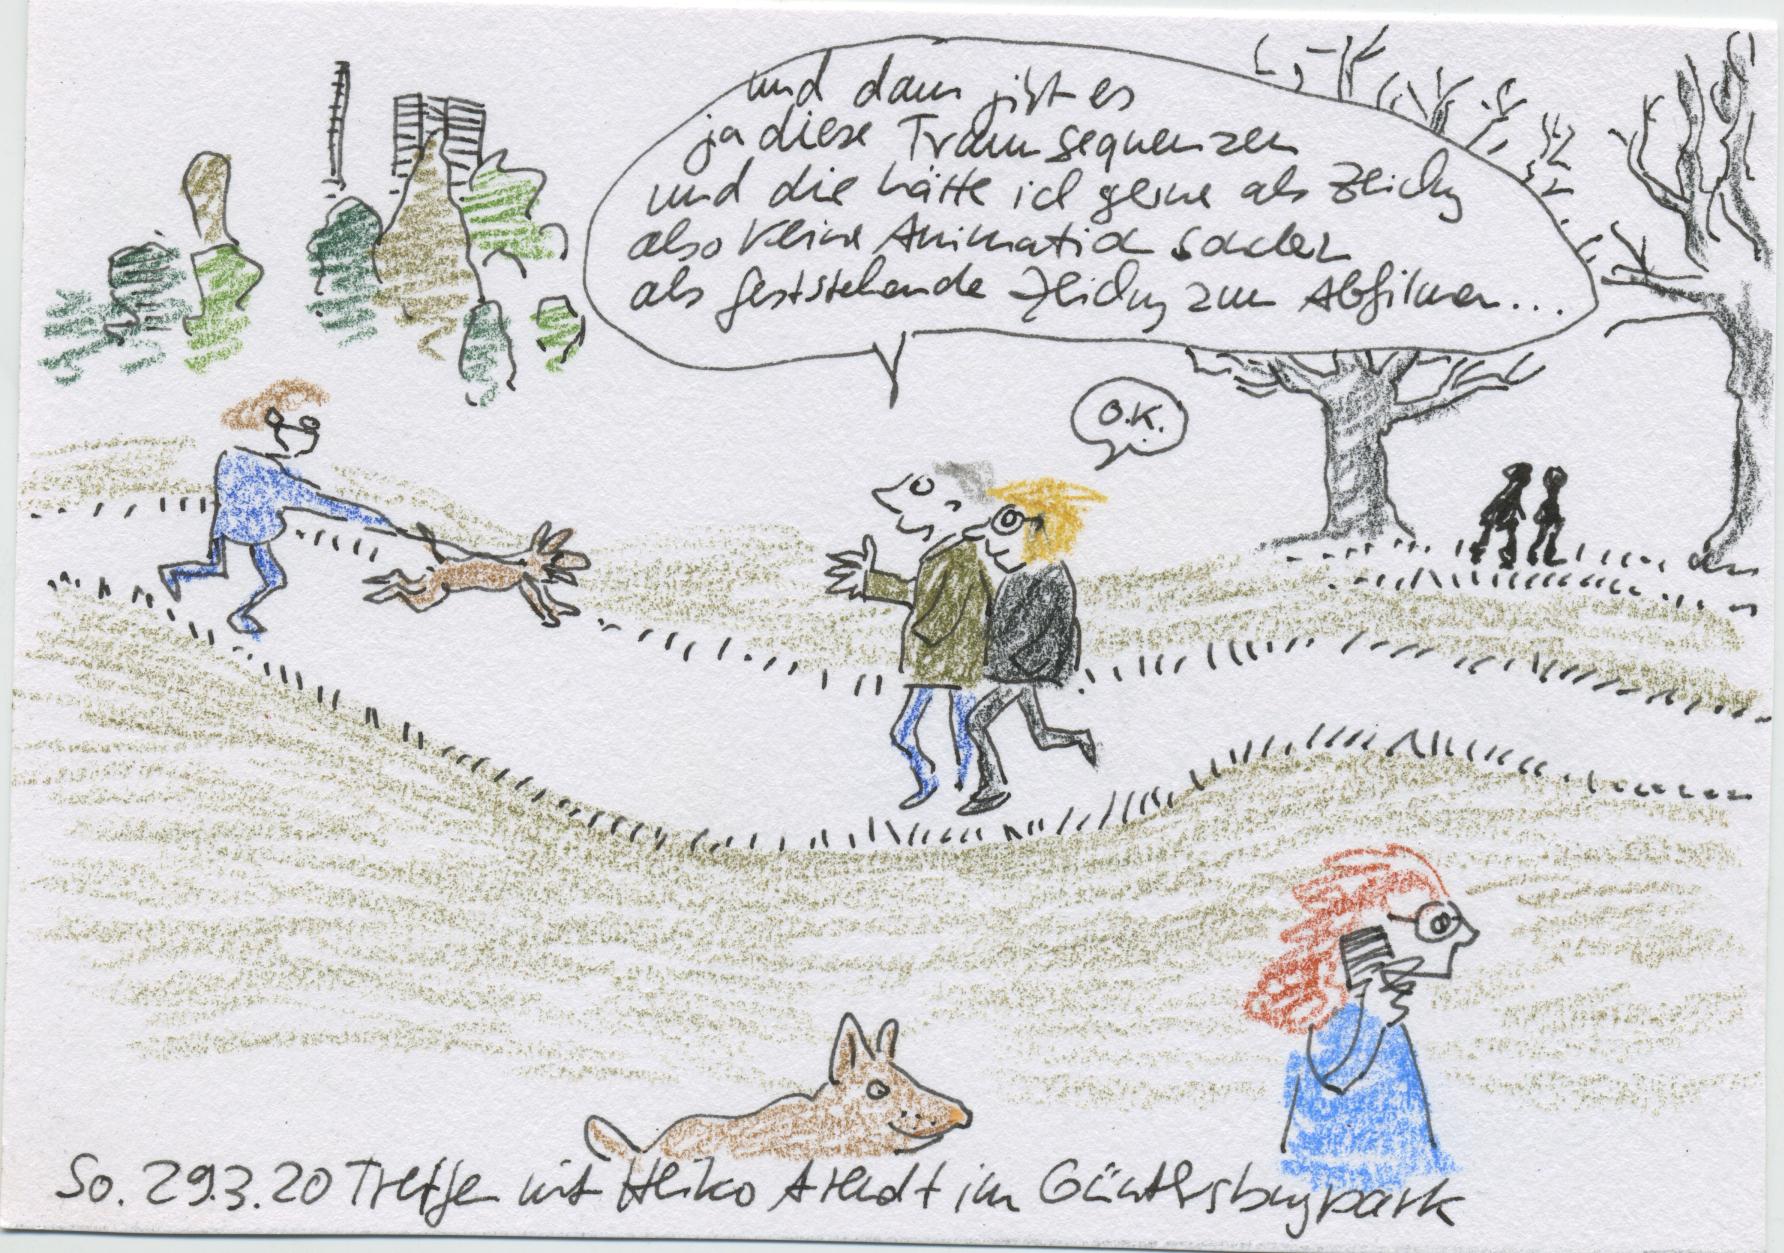 und dann gibt es
ja diese Traumsequenzen
und die hätte ich gerne als Zeichng
also keine Animation sondern
als feststehende Zeichng zum Abfilmen...
O.K.
So. 29.3.20 Treffen mit Heiko Arendt im Günthersburgpark